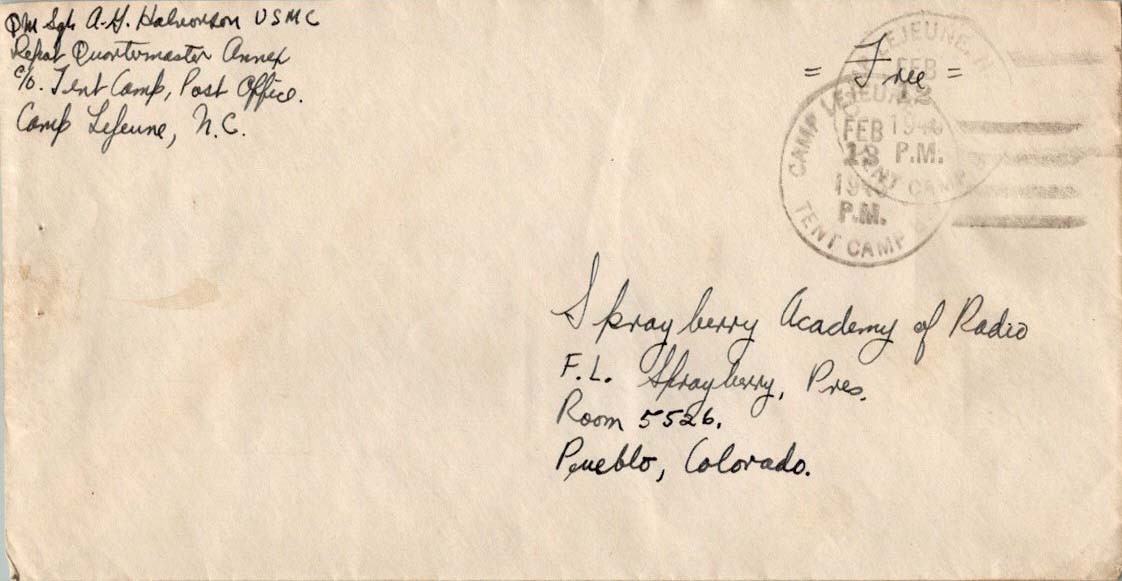 QM Sgt. A. G. Halvorson USMC
Repat Quartermaster Annex
c/o. Tent Camp, Post Office.
Camp Lejeune, N.C.
= Free =
LEJEUNE, N
FEB
12
194
P.M.
TENT CAMP
CAMP LEJEUNE
FEB
13
194
P.M.
TENT CAMP
Sprayberry Academy of Radio
F.L. Sprayberry, Pres.
Room 5526.
Pueblo, Colorado.